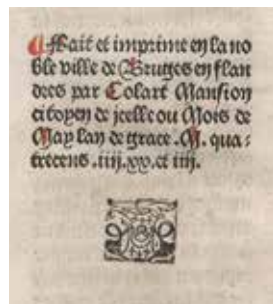 Fait et imprime en la no
ble ville de Bruges en flan
dres par Colart Mansion
citoyen de icelle ou Mois de
May lan de grace .M. qua⸗
trecens .iiij.xx. et iiij.